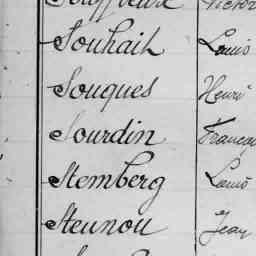 Souhait Louis
Souques Henri
Sourdin Françai
Stemberg Louis
Steunou Jean